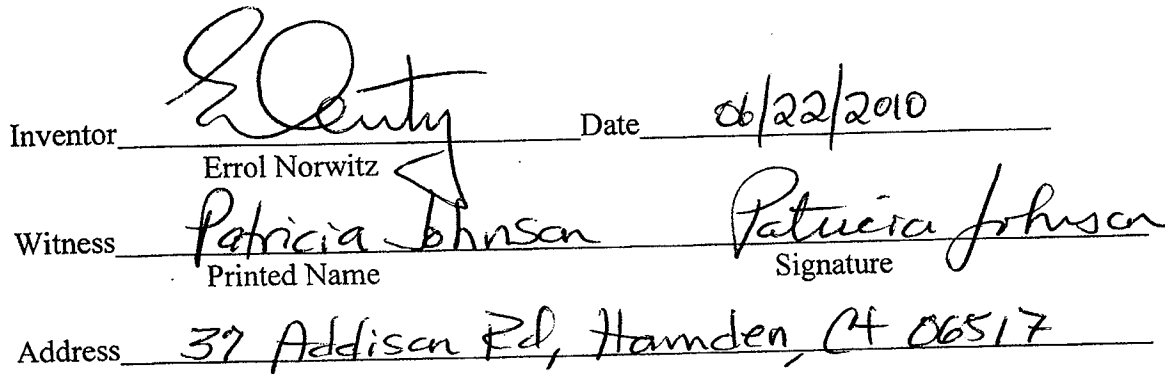 Inventor Date 06/22/2010
Errol Norwitz
Witness Patricia Johnson Patricia Johnson
Printed Name Signature
Address 37 Addison Rd, Hamden, Ct 06517